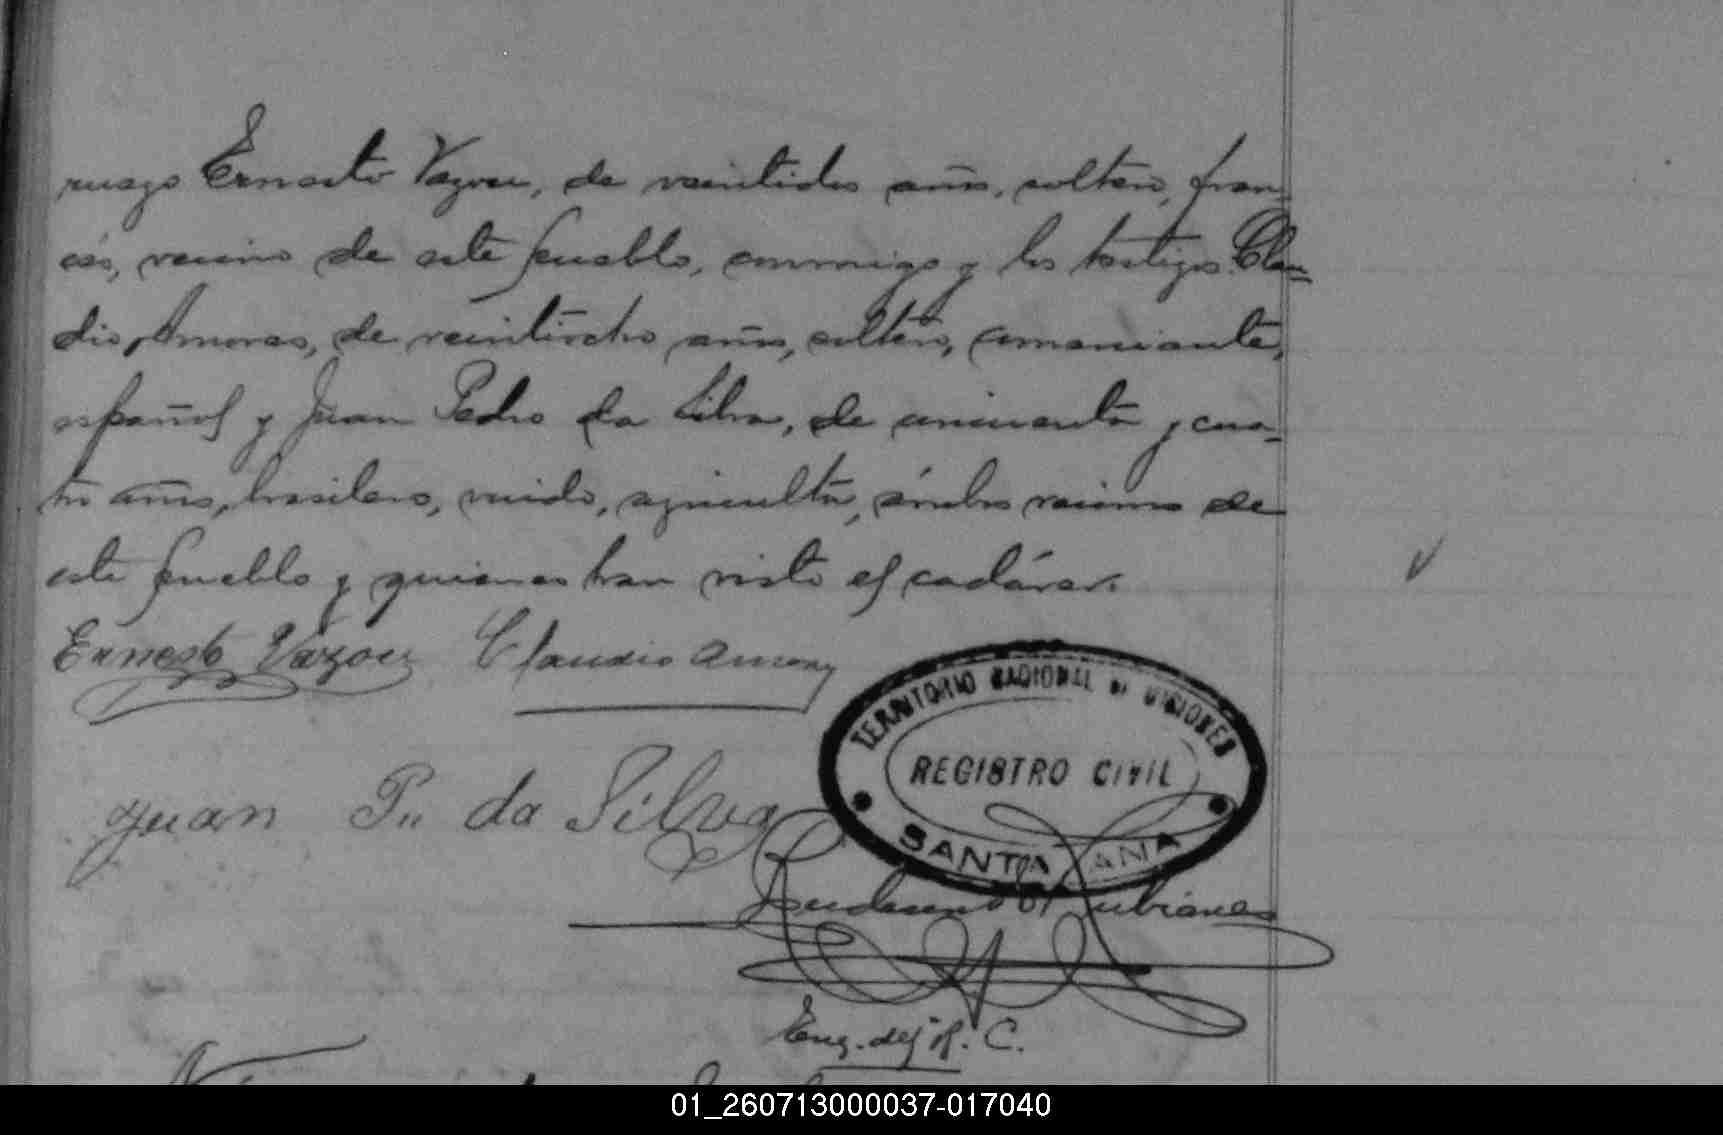 ruego Ernesto Vazou, de veintidos años, soltero, fran-
cés, vecino de este pueblo, conmigo y los testigos Clau-
dio Amoras, de veintiocho años, soltero, comerciante,
español y Juan Pedro da Silva, de cincuenta y cua-
tro años, brasilero, viudo, agricultor, ámbos vecinos de
este pueblo y quienes han visto el cadáver.
Ernesto Vazou Claudio
TERRITORIO NACIONAL DE MISIONES
REGISTRO CIVIL
SANTA ANA
Juan P. da Silva
Enc. del R. C.
01_260713000037-017040